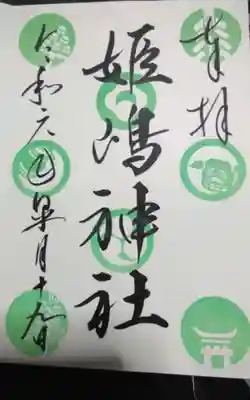 奉拝
姫嶋神社
令和年皐月十日